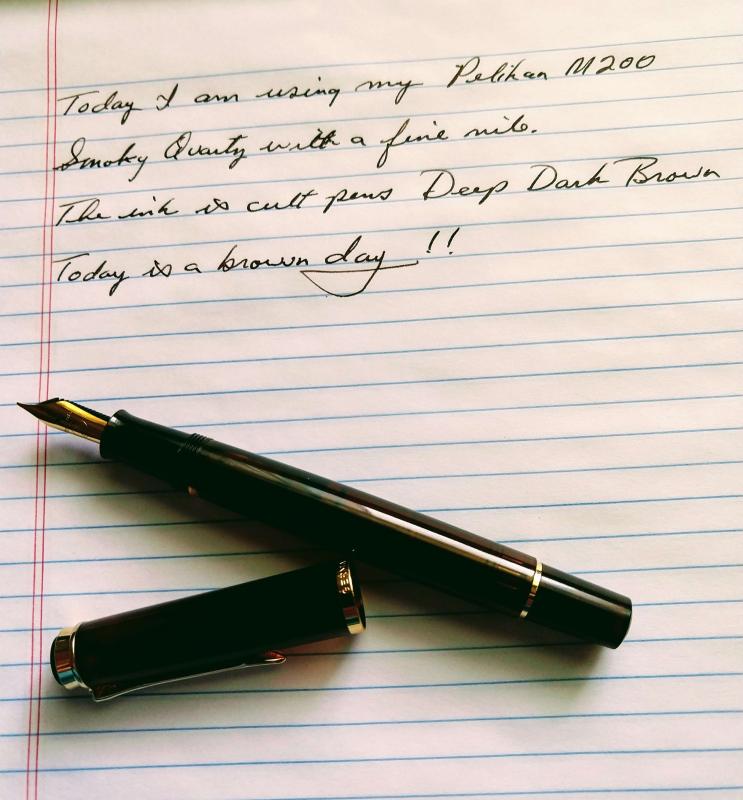 Today I am using my Pelikan M200
Smoky Quartz with a fine nib.
The ink is cult pens Deep Dark Brown
Today is a brown day !!